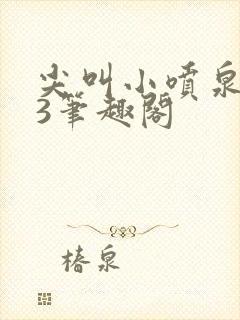 尖叫小喷泉
3筆趣閣
椿泉